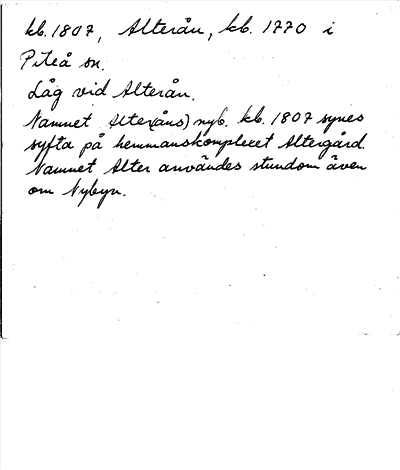 kb. 1807, Alterån, kb. 1770 i
Piteå sn.
Låg vid Alterån.
Namnet Alter(åns) nyb. kb. 1807 synes
syfta på hemmanskomplexet Altergård.
Namnet Alter användes stundom även
om Nybyn.